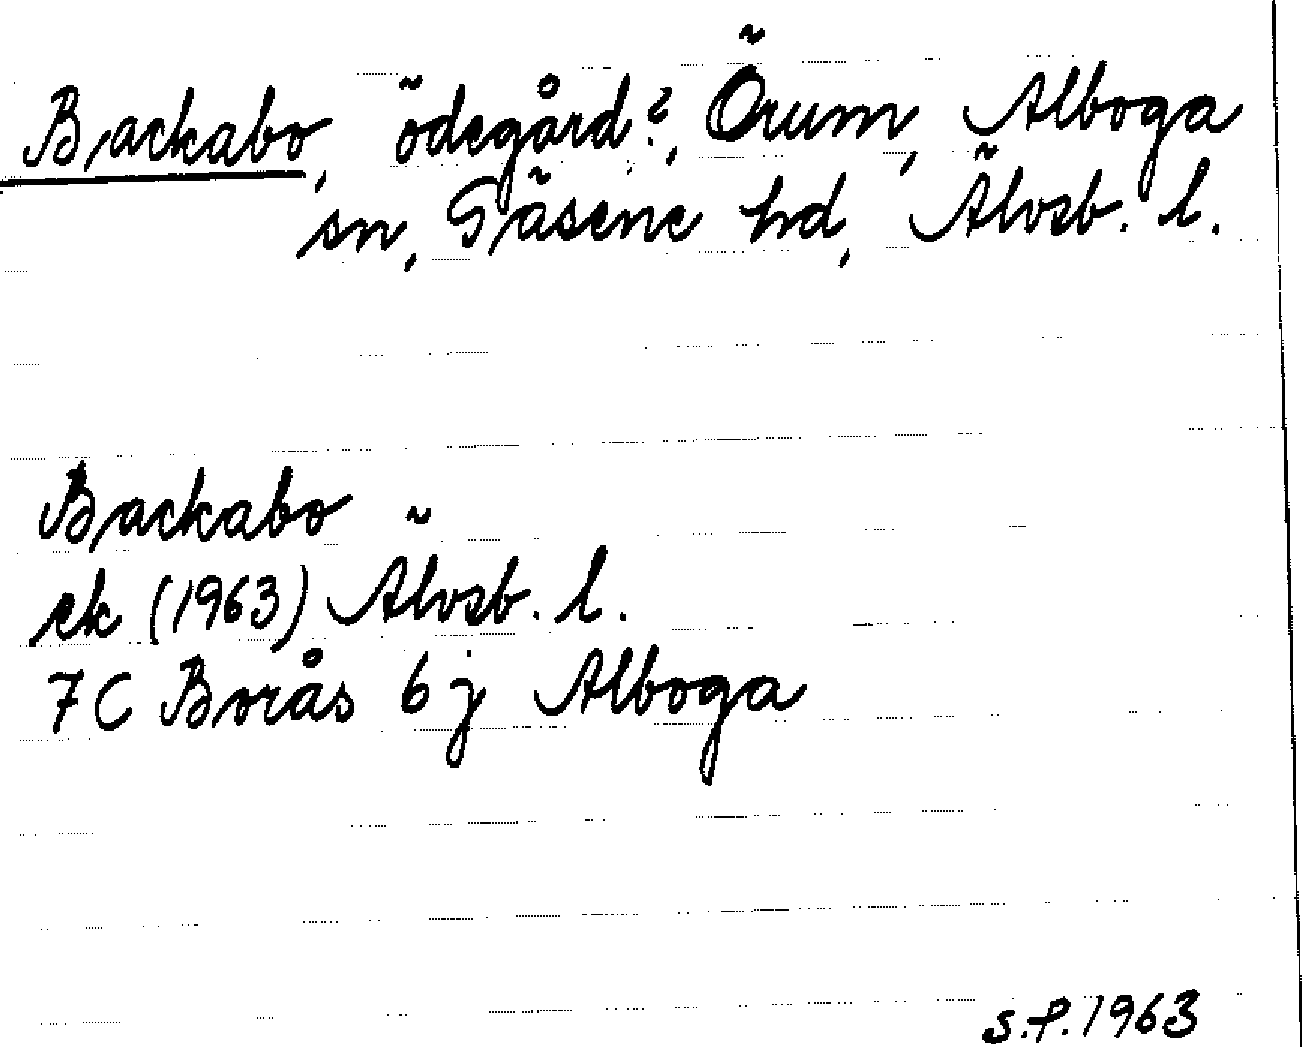 Backabo, ödegård?, Örum, Alboga
sn, Gäsene hd, Älvsb. l.
Backabo
ek (1963) Älvsb. l.
7C Borås 6j Alboga
S.P. 1963